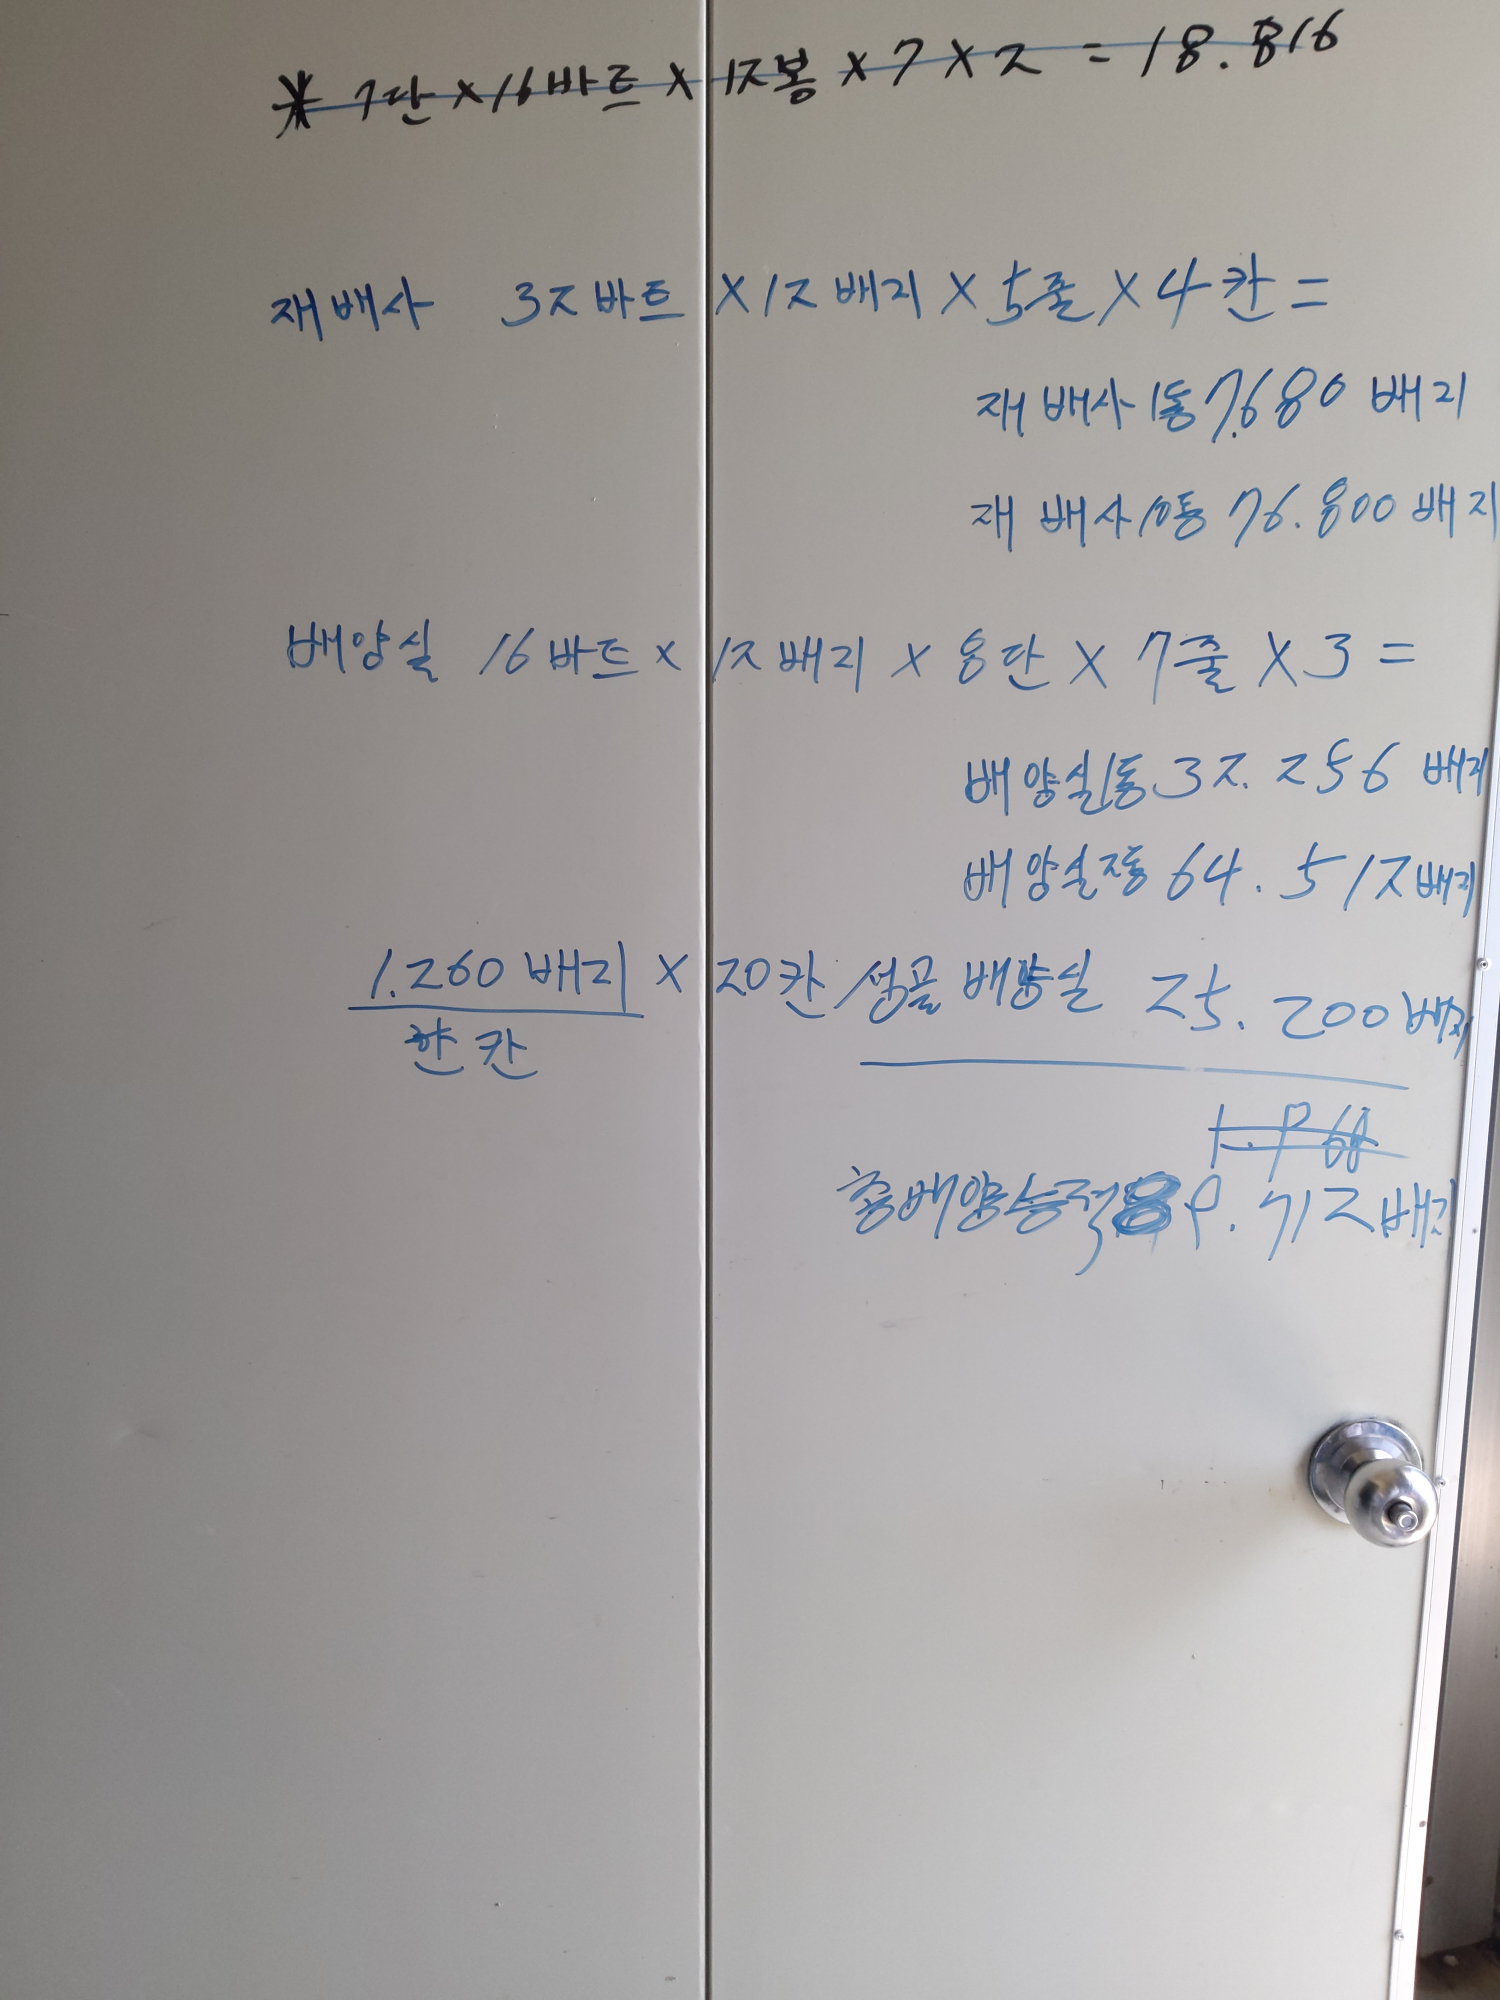 ※ 7단 × 16바트 × 12봉 × 7 × 2 = 18.816
재배사 32바트 × 12배지 × 5줄 × 4칸 =
재배사 1동 7.680 배지
재배사 10동 76.800 배지
배양실 16바트 × 12배지 × 8단 × 7줄 × 3 =
배양실 1동 32.256 배지
배양실 2동 64.512 배지
1.260 배지 × 20칸 성골 배양실 25.200 배지
한 칸
총배양능력 89.712 배지